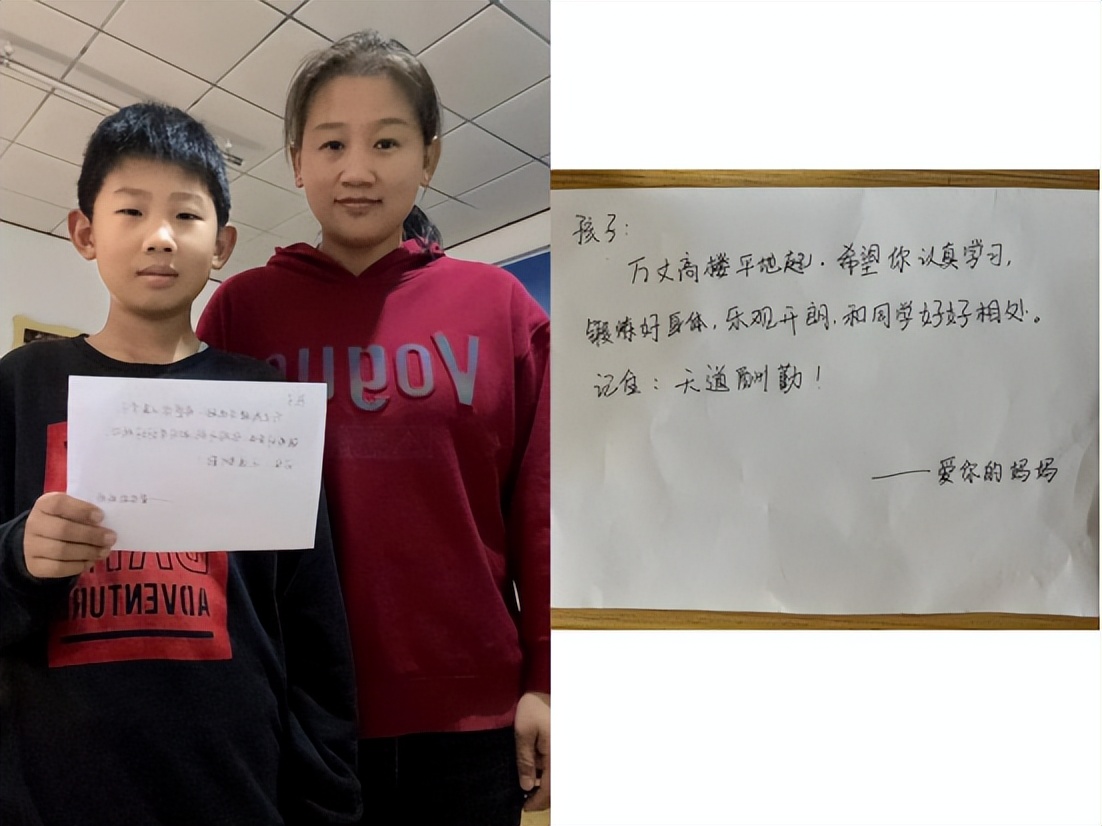 Vogue
ADVENTUR
孩子：
万丈高楼平地起．希望你认真学习，
锻炼好身体，乐观开朗，和同学好好相处。
记住：天道酬勤！
——爱你的妈妈